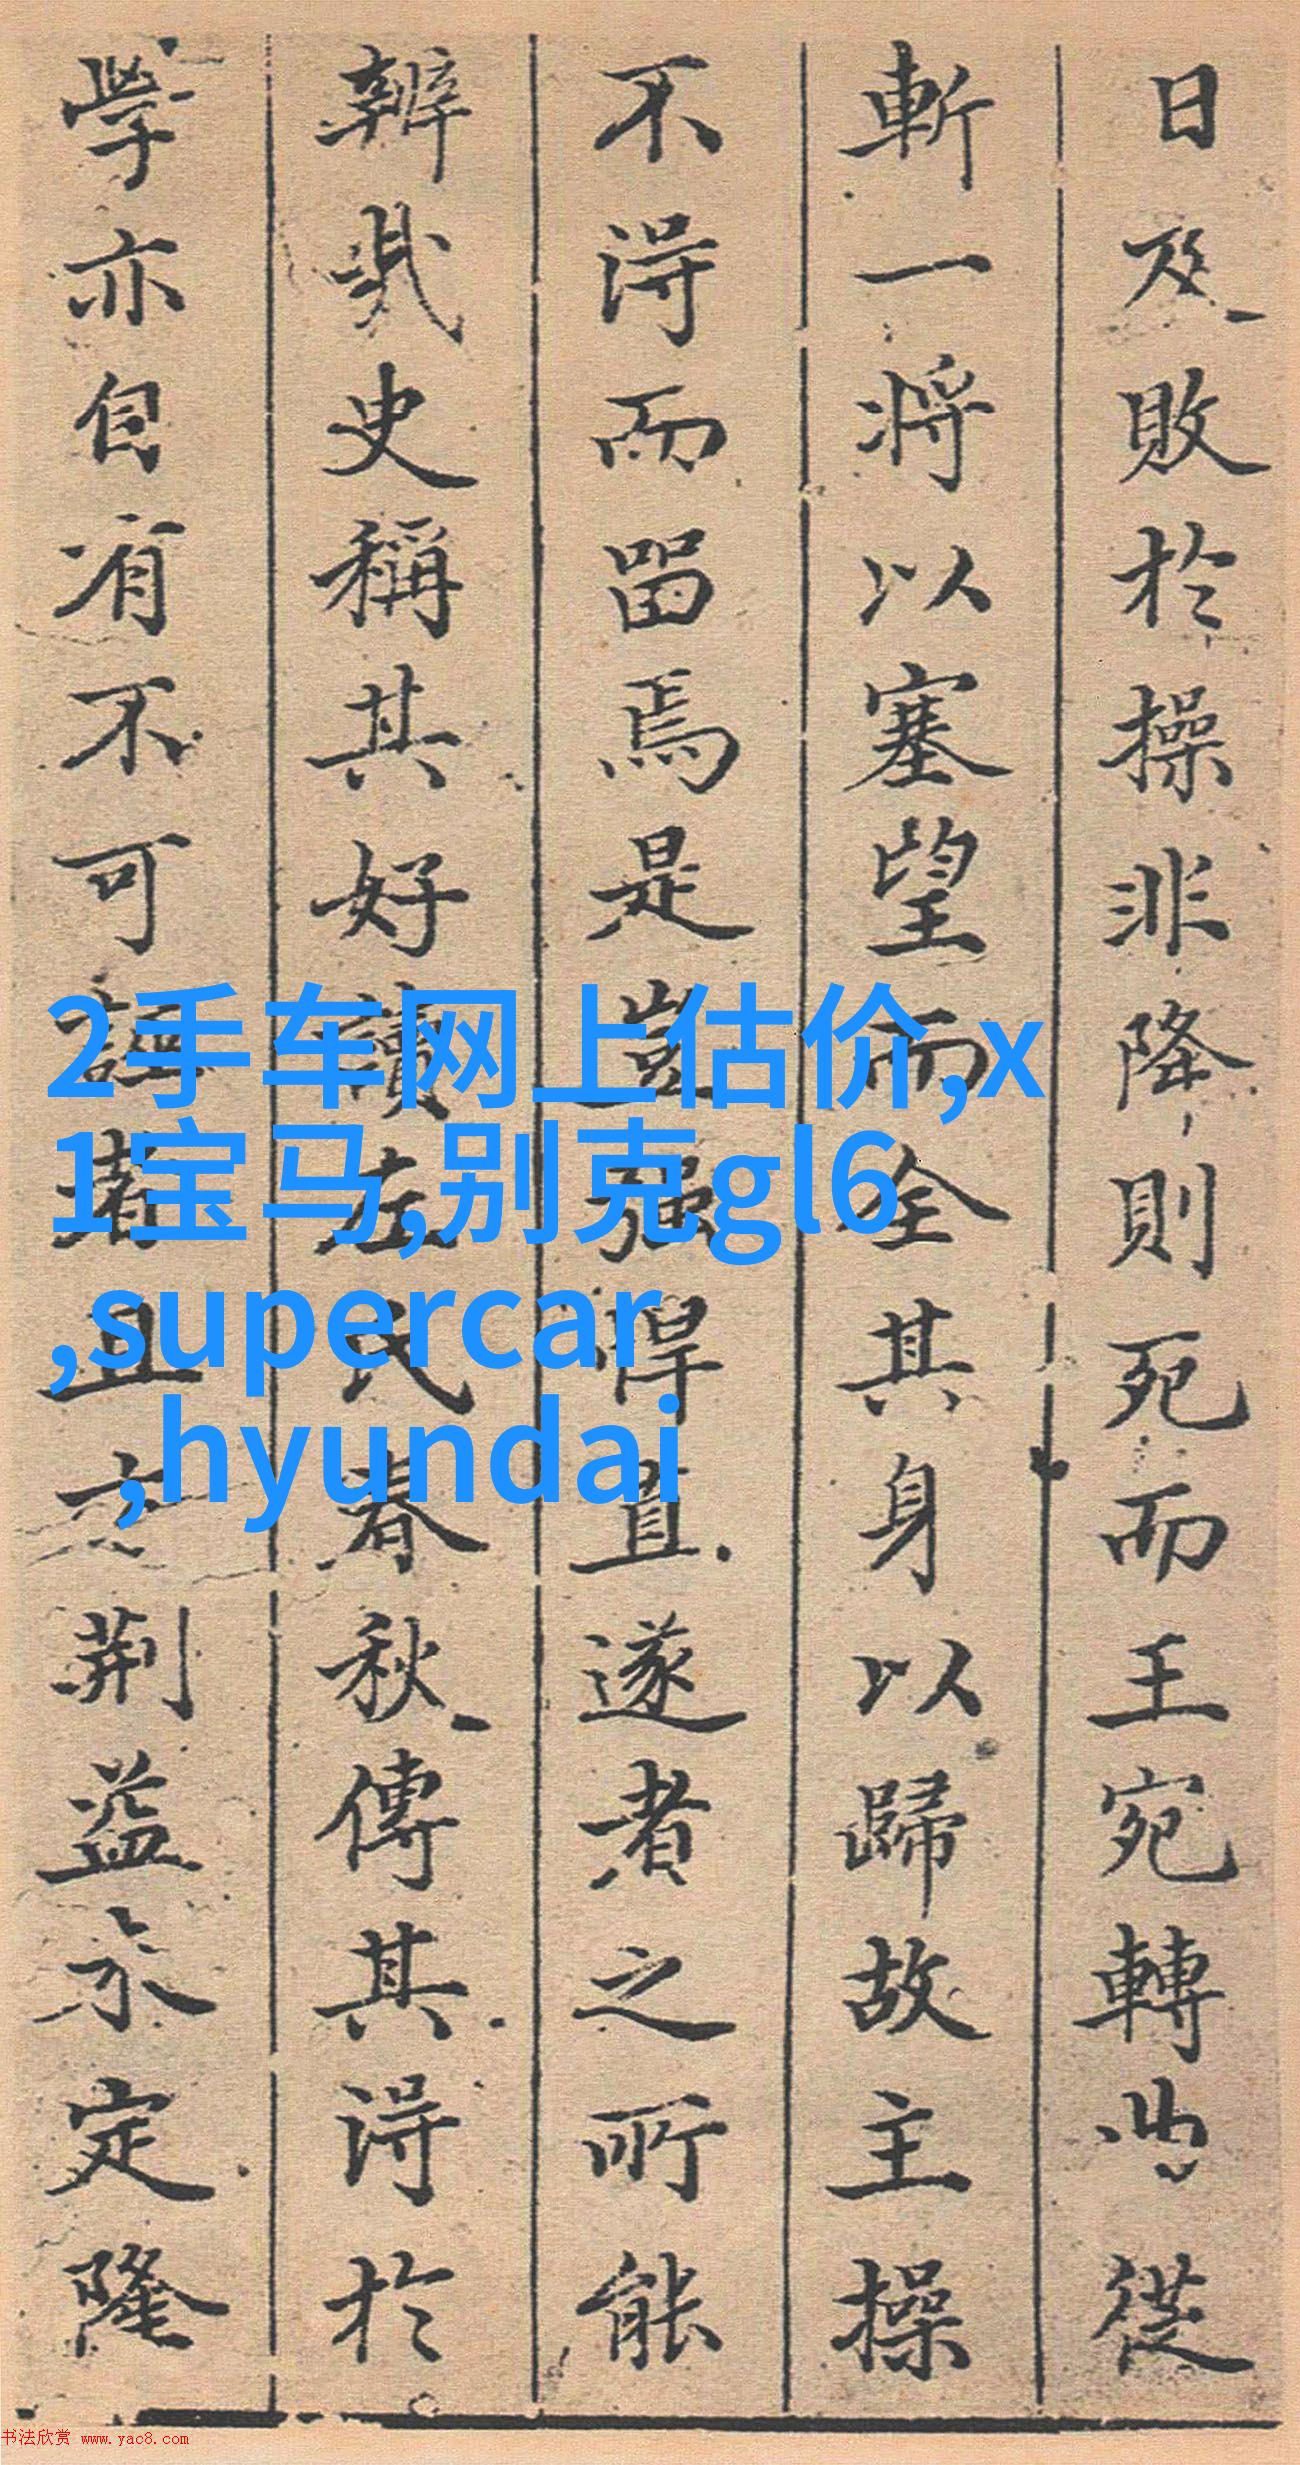 日及敗於操非降則死而王宛轉曲從
斬一將以塞望而全其身以歸故主操
不得而留焉是豈強悍直遂者之所能
辨哉史稱其好讀左氏春秋傳其得於
學亦自有不可誣者且立荆益未定隆
2手车网上估价,x
1宝马,别克gl6
,supercar
,hyundai
书法欣赏 www.yac8.com